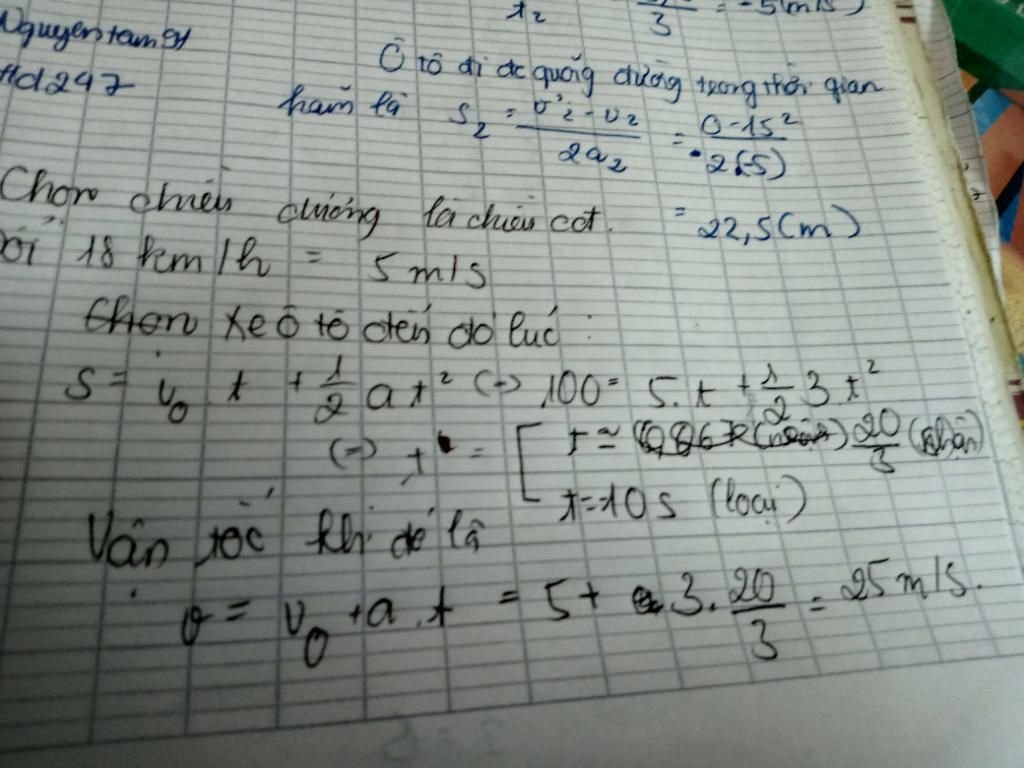 t₂ 3 = -5(m/s)
Nguyentamsy
Hd 247
Ô tô đi đc quãng đường trong thời gian
hãm là S₂ = v²₂ - v₂ / 2a₂ = 0 - 15² / 2(-5)
= 22,5(m)
Chọn chiều dương là chiều cđ.
Đổi 18 km/h = 5 m/s
Chọn xe ô tô đến đó lúc :
S = v₀ . t + 1/2 a t² (=) 100 = 5.t + 1/2 3.t²
(=) t = [ t ≈ 20/3 (nhận)
t = -10 s (loại)
Vận tốc khi đó là
v = v₀ + a . t = 5 + 3 . 20/3 = 25 m/s.